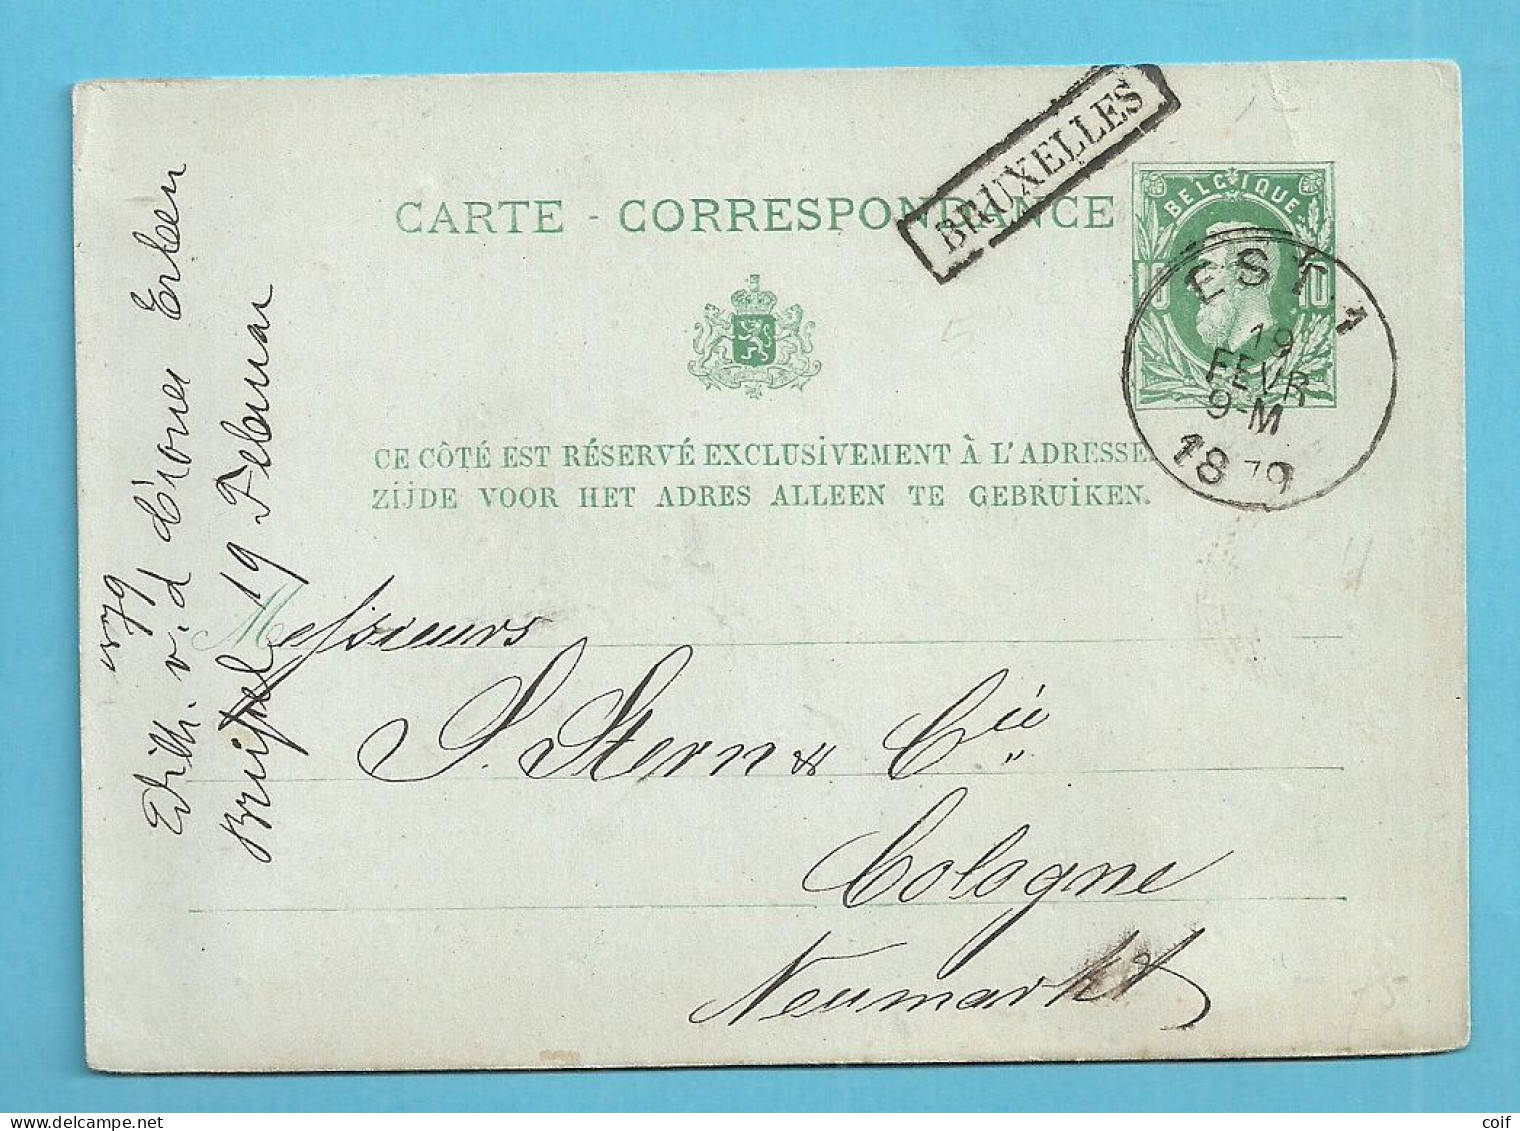 BRUXELLES
CARTE - CORRESPONDANCE
BELGIQUE
10 10
EST. 1
19
FEVR
9-M
1879
CE CÔTÉ EST RÉSERVÉ EXCLUSIVEMENT À L'ADRESSE
ZIJDE VOOR HET ADRES ALLEEN TE GEBRUIKEN.
Messieurs
S. Stern & Cie
Cologne
Neumarkt
Wilh. v. d Erben
Brüssel 19 Februar
1879
www.delcampe.net
coif